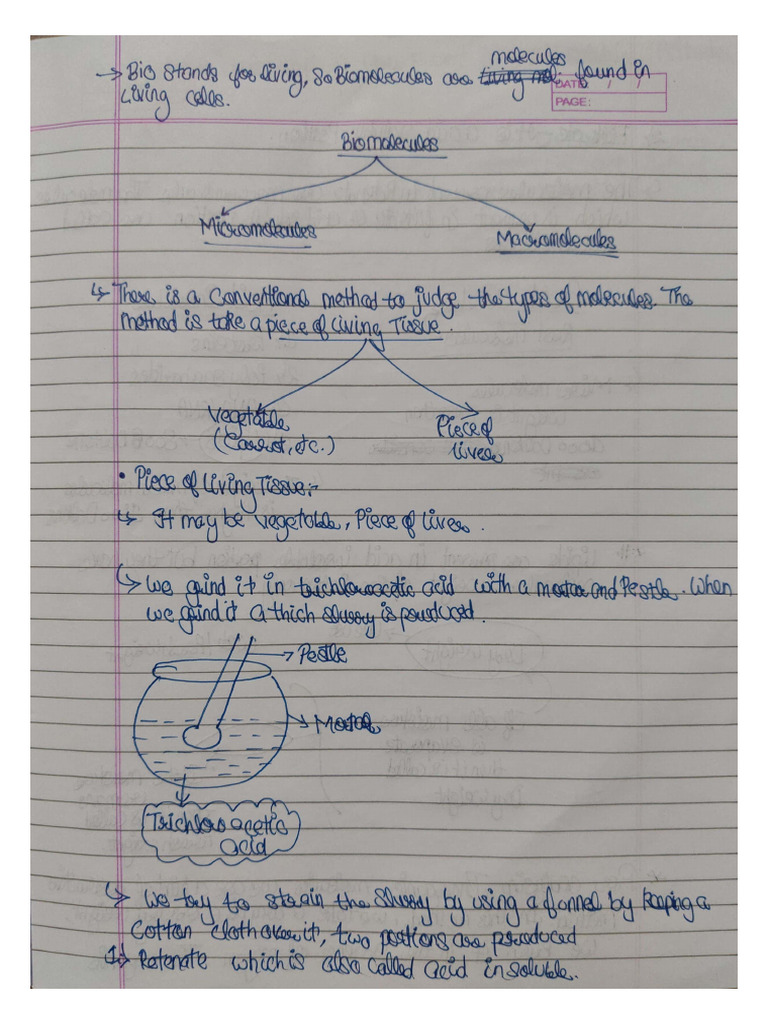 → Bio stands for living, so Biomolecules are molecules found in
Living cells.
DATE: / /
PAGE:
Biomolecules
Micromolecules
Macromolecules
↳ There is a Conventional method to judge the types of molecules. The
method is take a piece of Living Tissue.
Vegetable
(Carrot, etc.)
Piece of
liver
• Piece of Living Tissue:-
↳ It may be vegetable, Piece of Liver.
↳ We grind it in trichloroacetic acid with a mortar and Pestle. When
we grind it a thich slurry is produced.
→ Pestle
→ Mortar
Trichloroacetic
acid
↳ We try to strain the slurry by using a funnel by keeping a
Cotton cloth over it, two portions are produced
1→ Retenate which is also called acid insoluble.